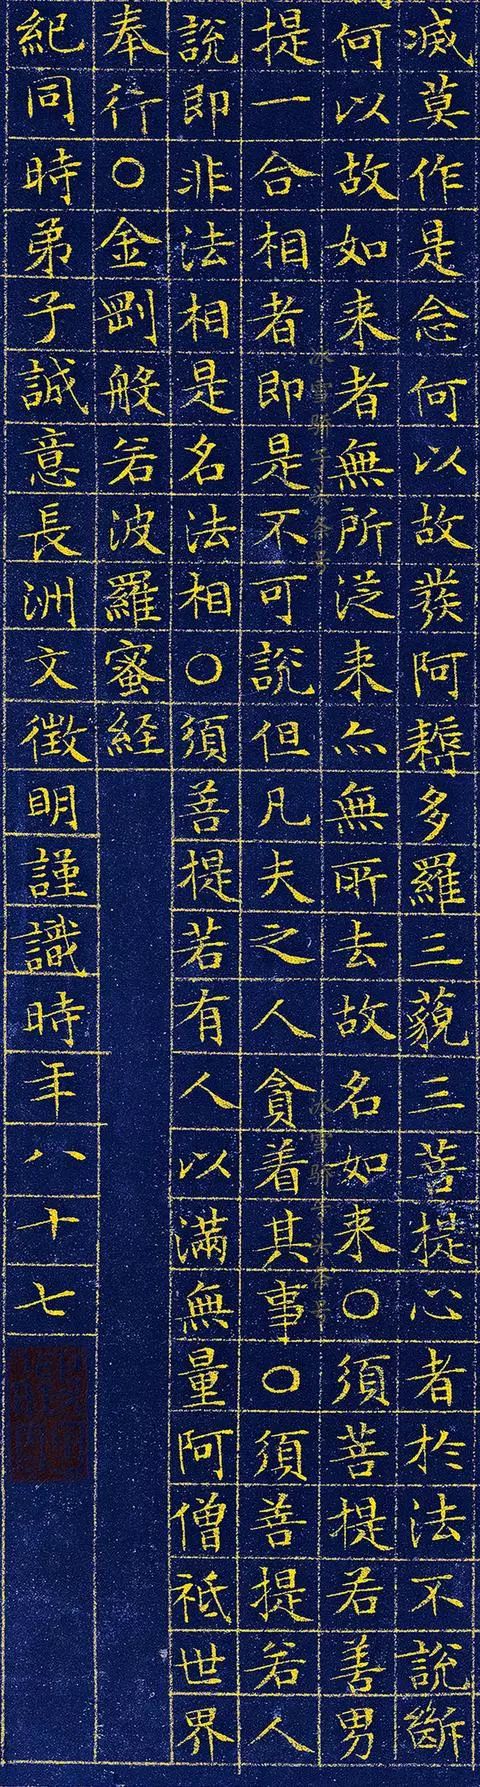 滅莫作是念何以故發阿耨多羅三藐三菩提心者於法不說斷
何以故如来者無所從来亦無所去故名如来○須菩提若善男
提一合相者即是不可說但凡夫之人貪着其事○須菩提若人
說即非法相是名法相○須菩提若有人以滿無量阿僧祇世界
奉行○金剛般若波羅蜜経
紀同時弟子誠意長洲文徵明謹識時年八十七